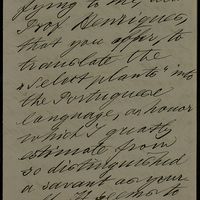 to me,
Prof Henriques,
that you offer, to
translate the
"Select plants" into
the Portuguese
language, an honor
which I greatly
estimate from
so distinguished
a savant as your